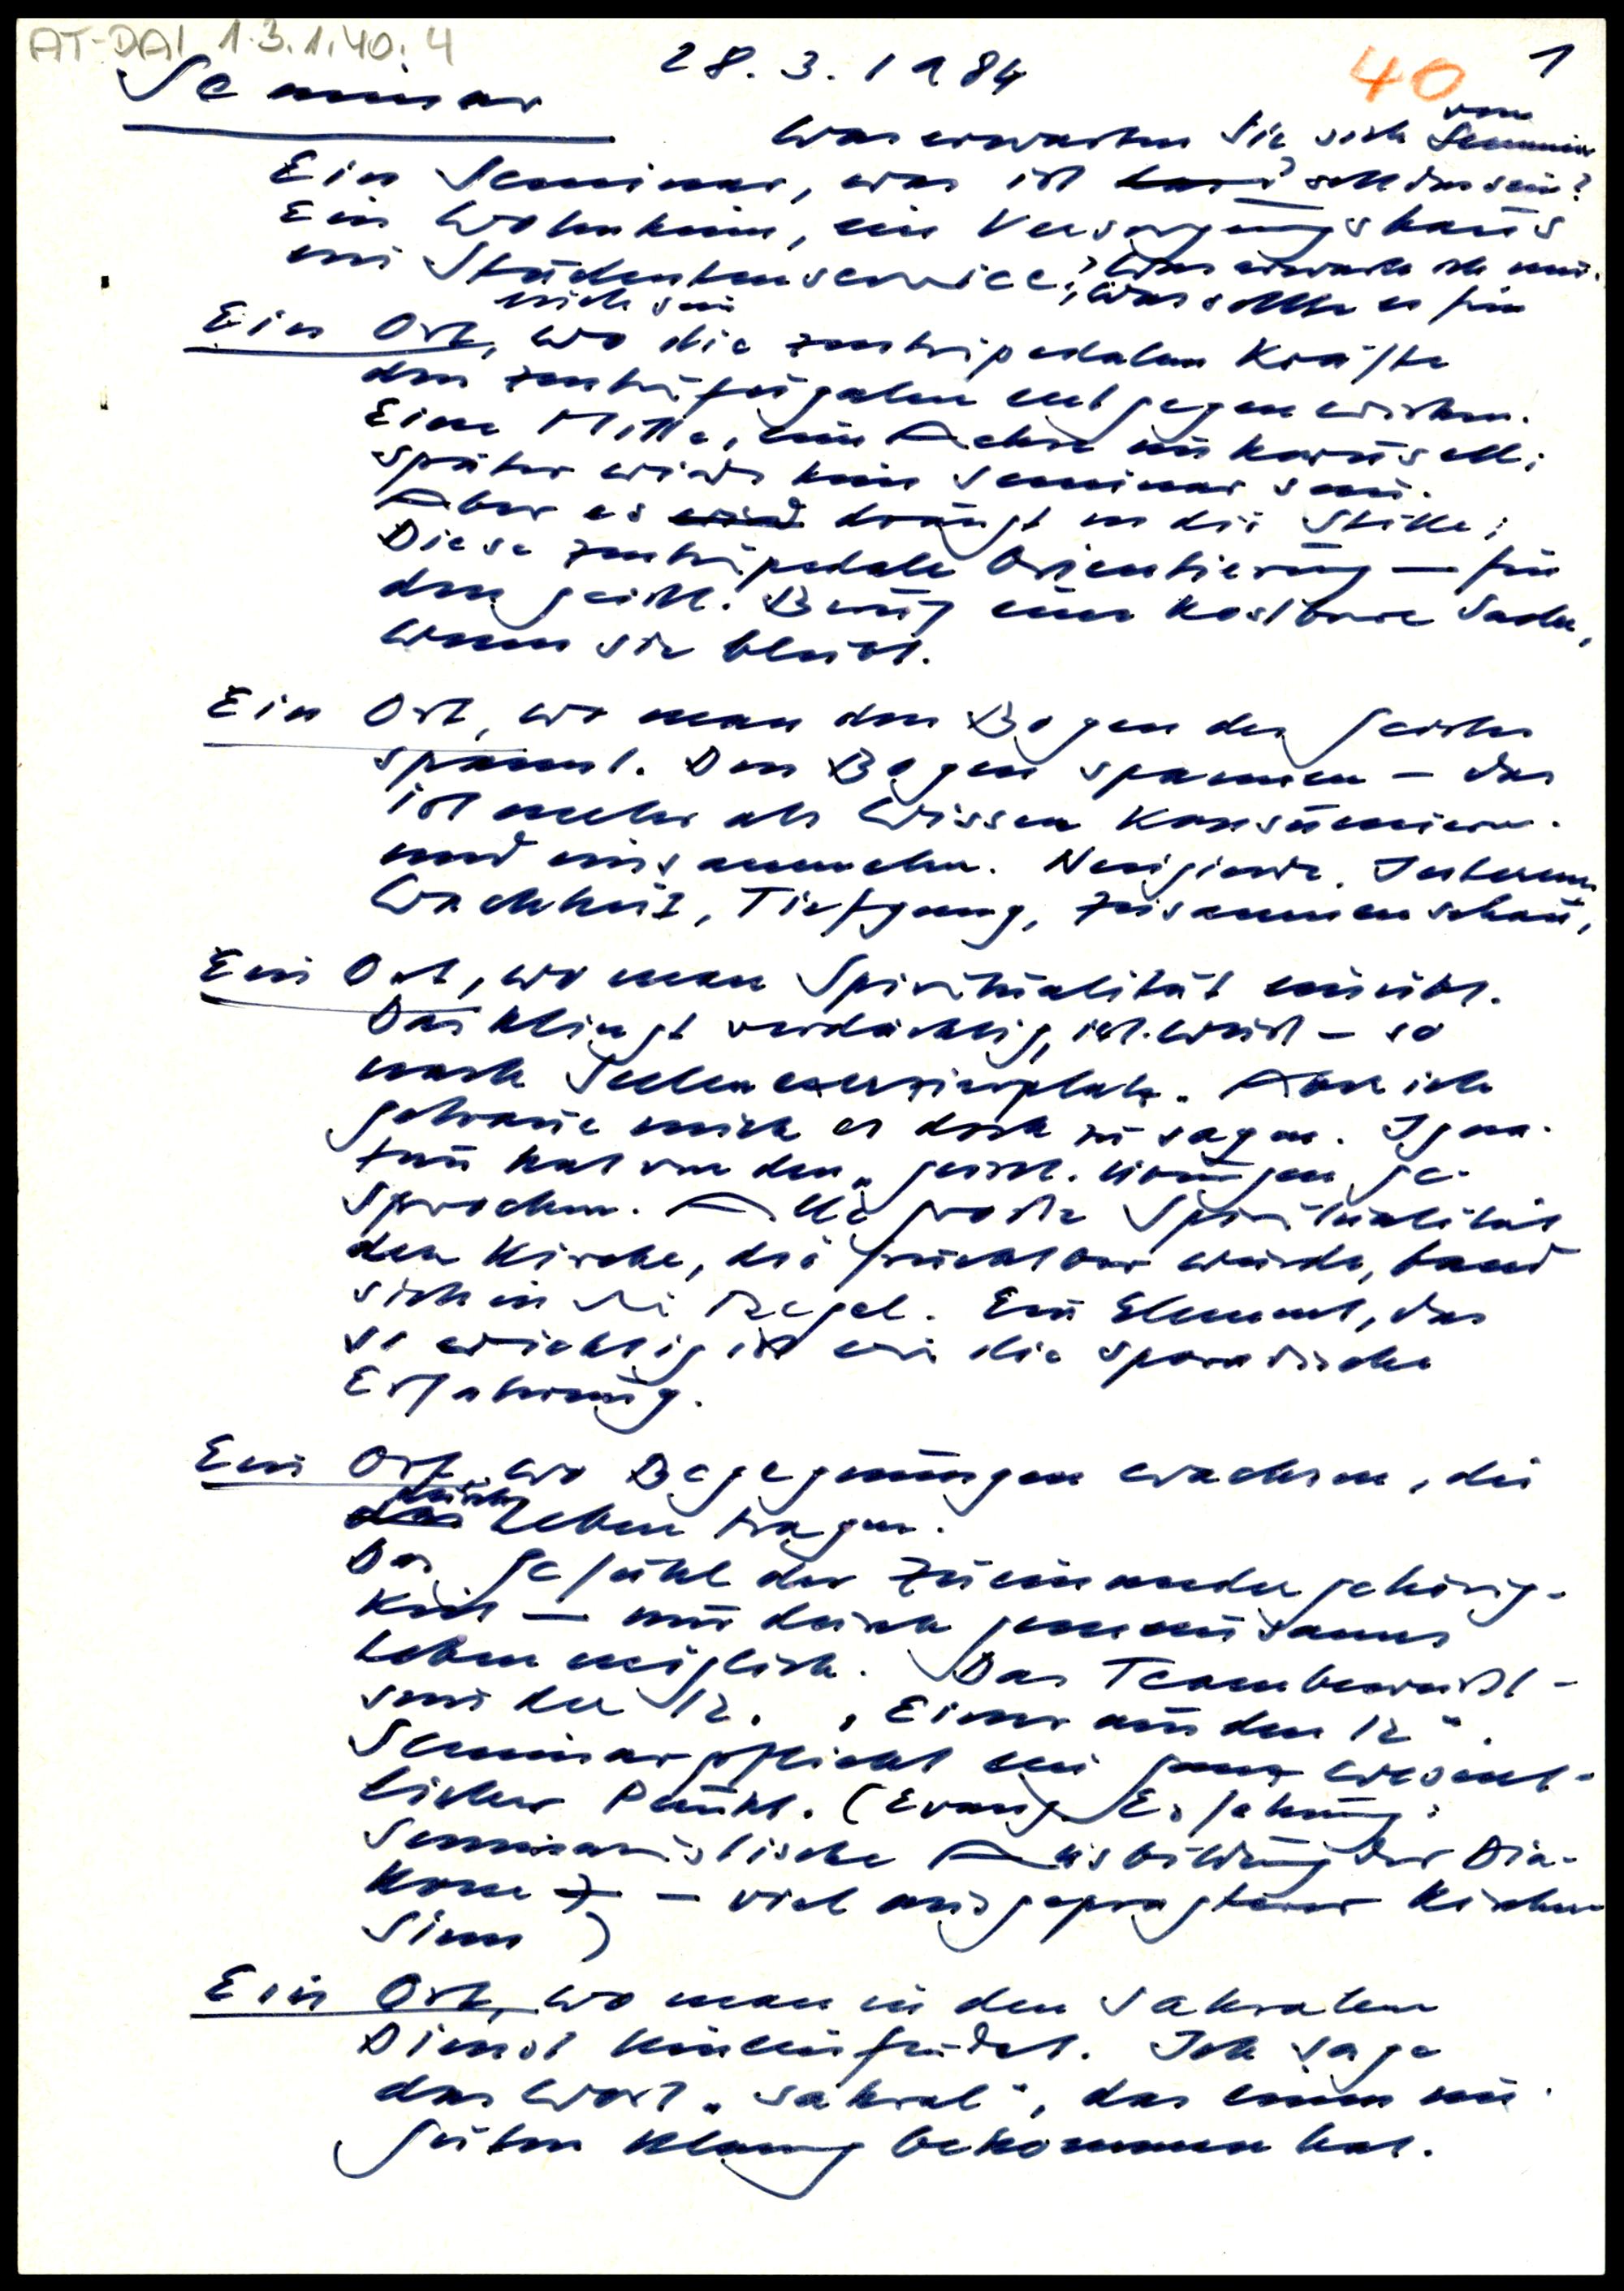 AT-DAI 1.3.1.40.4
28.3.1984
40
1
Seminar
Was erwarten Sie sich vom Seminar
Ein Seminar, was ist das? soll das sein?
Ein Wohnheim, ein Versorgungshaus
ein Studentenservice? Was erwarte ich mir.
Was sollte es für
mich sein
Ein Ort, wo die zentripedalen Kräfte
den zentrifugalen entgegenwirken.
Eine Mitte, eine Achse im Karusell;
später wird kein Seminar sein.
Aber es wird drängt in die Stille;
Diese zentripedale Orientierung – für
den geistl. Beruf eine kostbare Sache,
wenn sie bleibt.
Ein Ort, wo man den Bogen des Geistes
spannt. Den Bogen spannen – das
ist mehr als Wissen konsumieren
und einsammeln. Neugierde, Interesse,
Wachheit, Tiefgang, Zusammenschau,
Ein Ort, wo man Spiritualität einübt.
Das klingt verdächtig, ich weiß – so
nach Seelenexerzierplatz. Aber ich
getraue mich es doch zu sagen. Igna-
tius hat von den „geistl. Übungen ge-
sprochen. Alle große Spiritualität
der Kirche, die fruchtbar wurde, band
sich in die Regel. Ein Element, das
so wichtig ist wie die sporadische
Erfahrung.
Ein Ort, wo Begegnungen wachsen, die
das durchs Leben tragen.
Das Gefühl der Zueinandergehörig-
keit – nur durch gemeinsames
Leben möglich. Das Teambewußt-
sein der 12. „Einer aus den 12".
Seminarpflicht ein ganz wesent-
licher Punkt. (Evang. Erfahrung:
Seminaristische Ausbildung der Dia-
kone – viel ausgeprägterer Kirchen-
sinn)
Ein Ort, wo man in den sakralen
Dienst hineinfindet. Ich sage
das Wort „sakral", das einen un-
guten Klang bekommen hat.